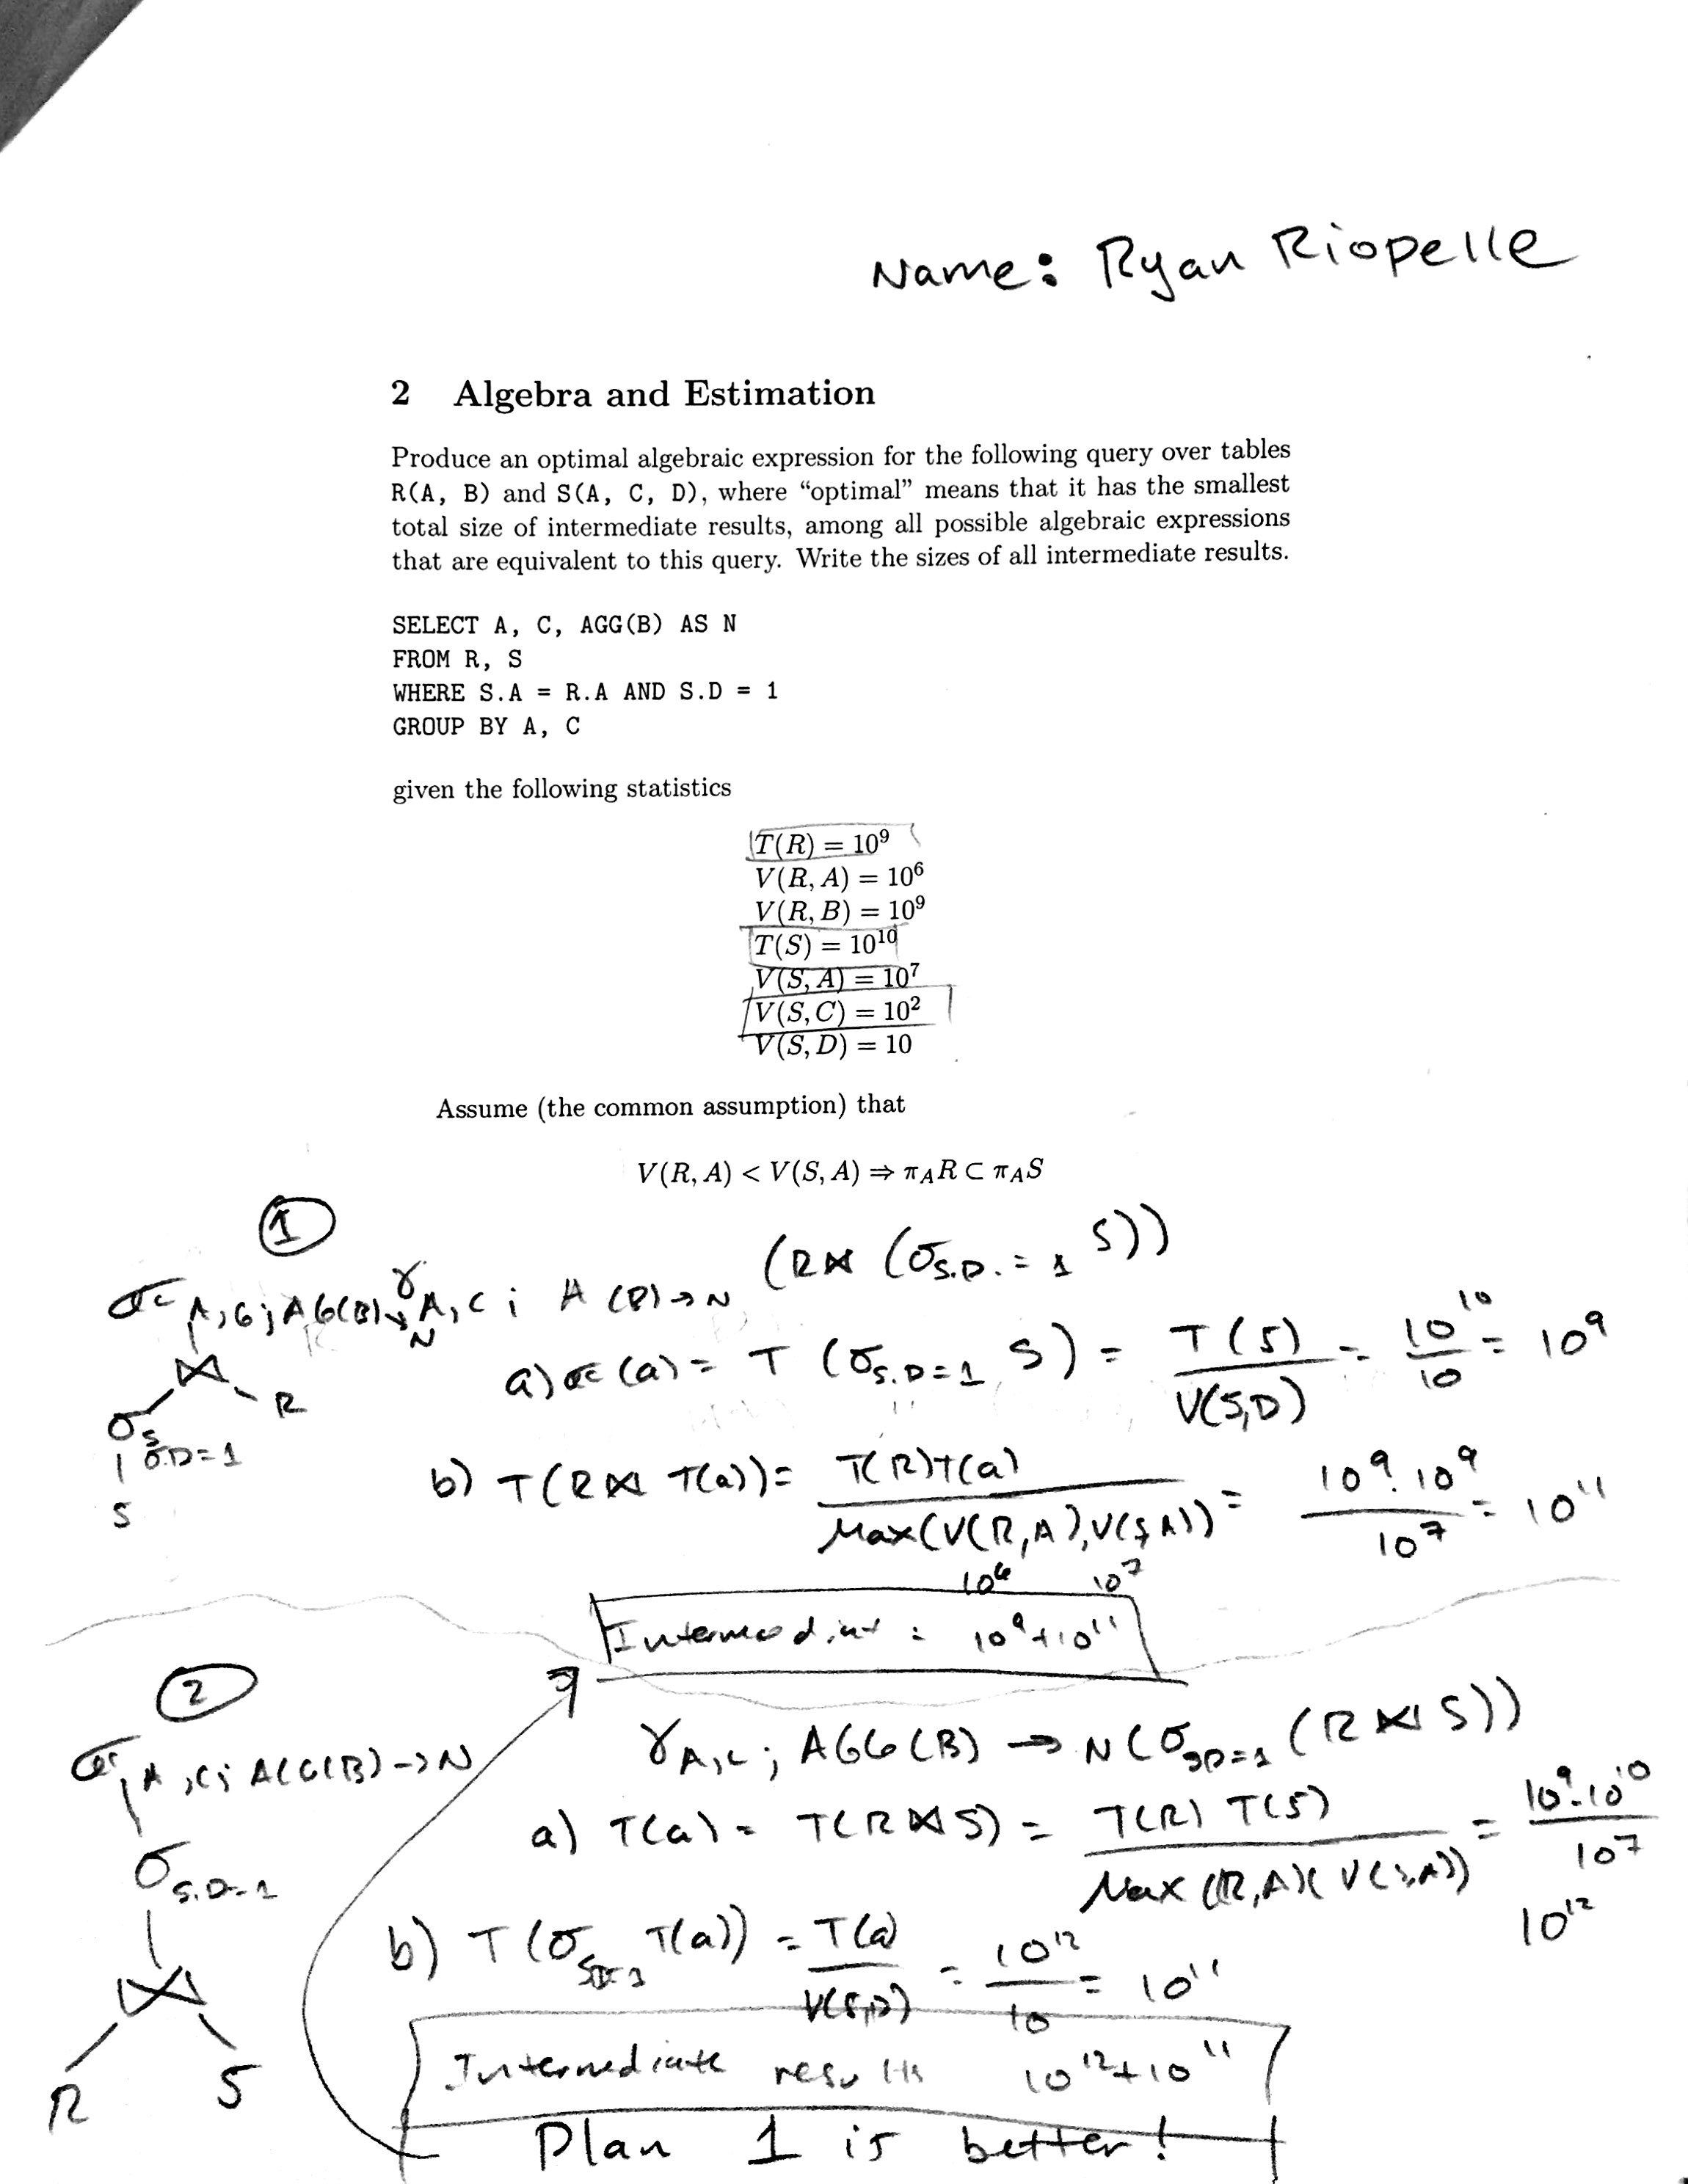 Name: Ryan Riopelle
2 Algebra and Estimation
Produce an optimal algebraic expression for the following query over tables
R(A, B) and S(A, C, D), where “optimal” means that it has the smallest
total size of intermediate results, among all possible algebraic expressions
that are equivalent to this query. Write the sizes of all intermediate results.
SELECT A, C, AGG(B) AS N
FROM R, S
WHERE S.A = R.A AND S.D = 1
GROUP BY A, C
given the following statistics
T(R) = 10⁹
V(R, A) = 10⁶
V(R, B) = 10⁹
T(S) = 10¹⁰
V(S, A) = 10⁷
V(S, C) = 10²
V(S, D) = 10
Assume (the common assumption) that
V(R, A) < V(S, A) ⇒ π_A R ⊂ π_A S
1
γ A, C ; A (B) → N (R ⋈ (σ S.D. = 1 S))
⋈
R
σ S.D = 1
S
a) (a) = T (σ S.D=1 S) = T(S) / V(S,D) = 10¹⁰ / 10 = 10⁹
b) T(R ⋈ T(a)) = T(R)T(a) / Max(V(R,A),V(S,A)) = 10⁹·10⁹ / 10⁷ = 10¹¹
10⁶ 10⁷
= 10⁹+10¹¹
2
γ A,C ; AGG(B) → N (σ S.D=1 (R ⋈ S))
A, C; AGG(B) → N
σ S.D=1
⋈
R S
a) T(a) = T(R ⋈ S) = T(R) T(S) / Max (R,A)( V(S,A)) = 10⁹·10¹⁰ / 10⁷
10¹²
b) T (σ SD=1 T(a)) = T(a) / V(S,D) = 10¹² / 10 = 10¹¹
Intermediate results 10¹²+10¹¹
Plan 1 is better!